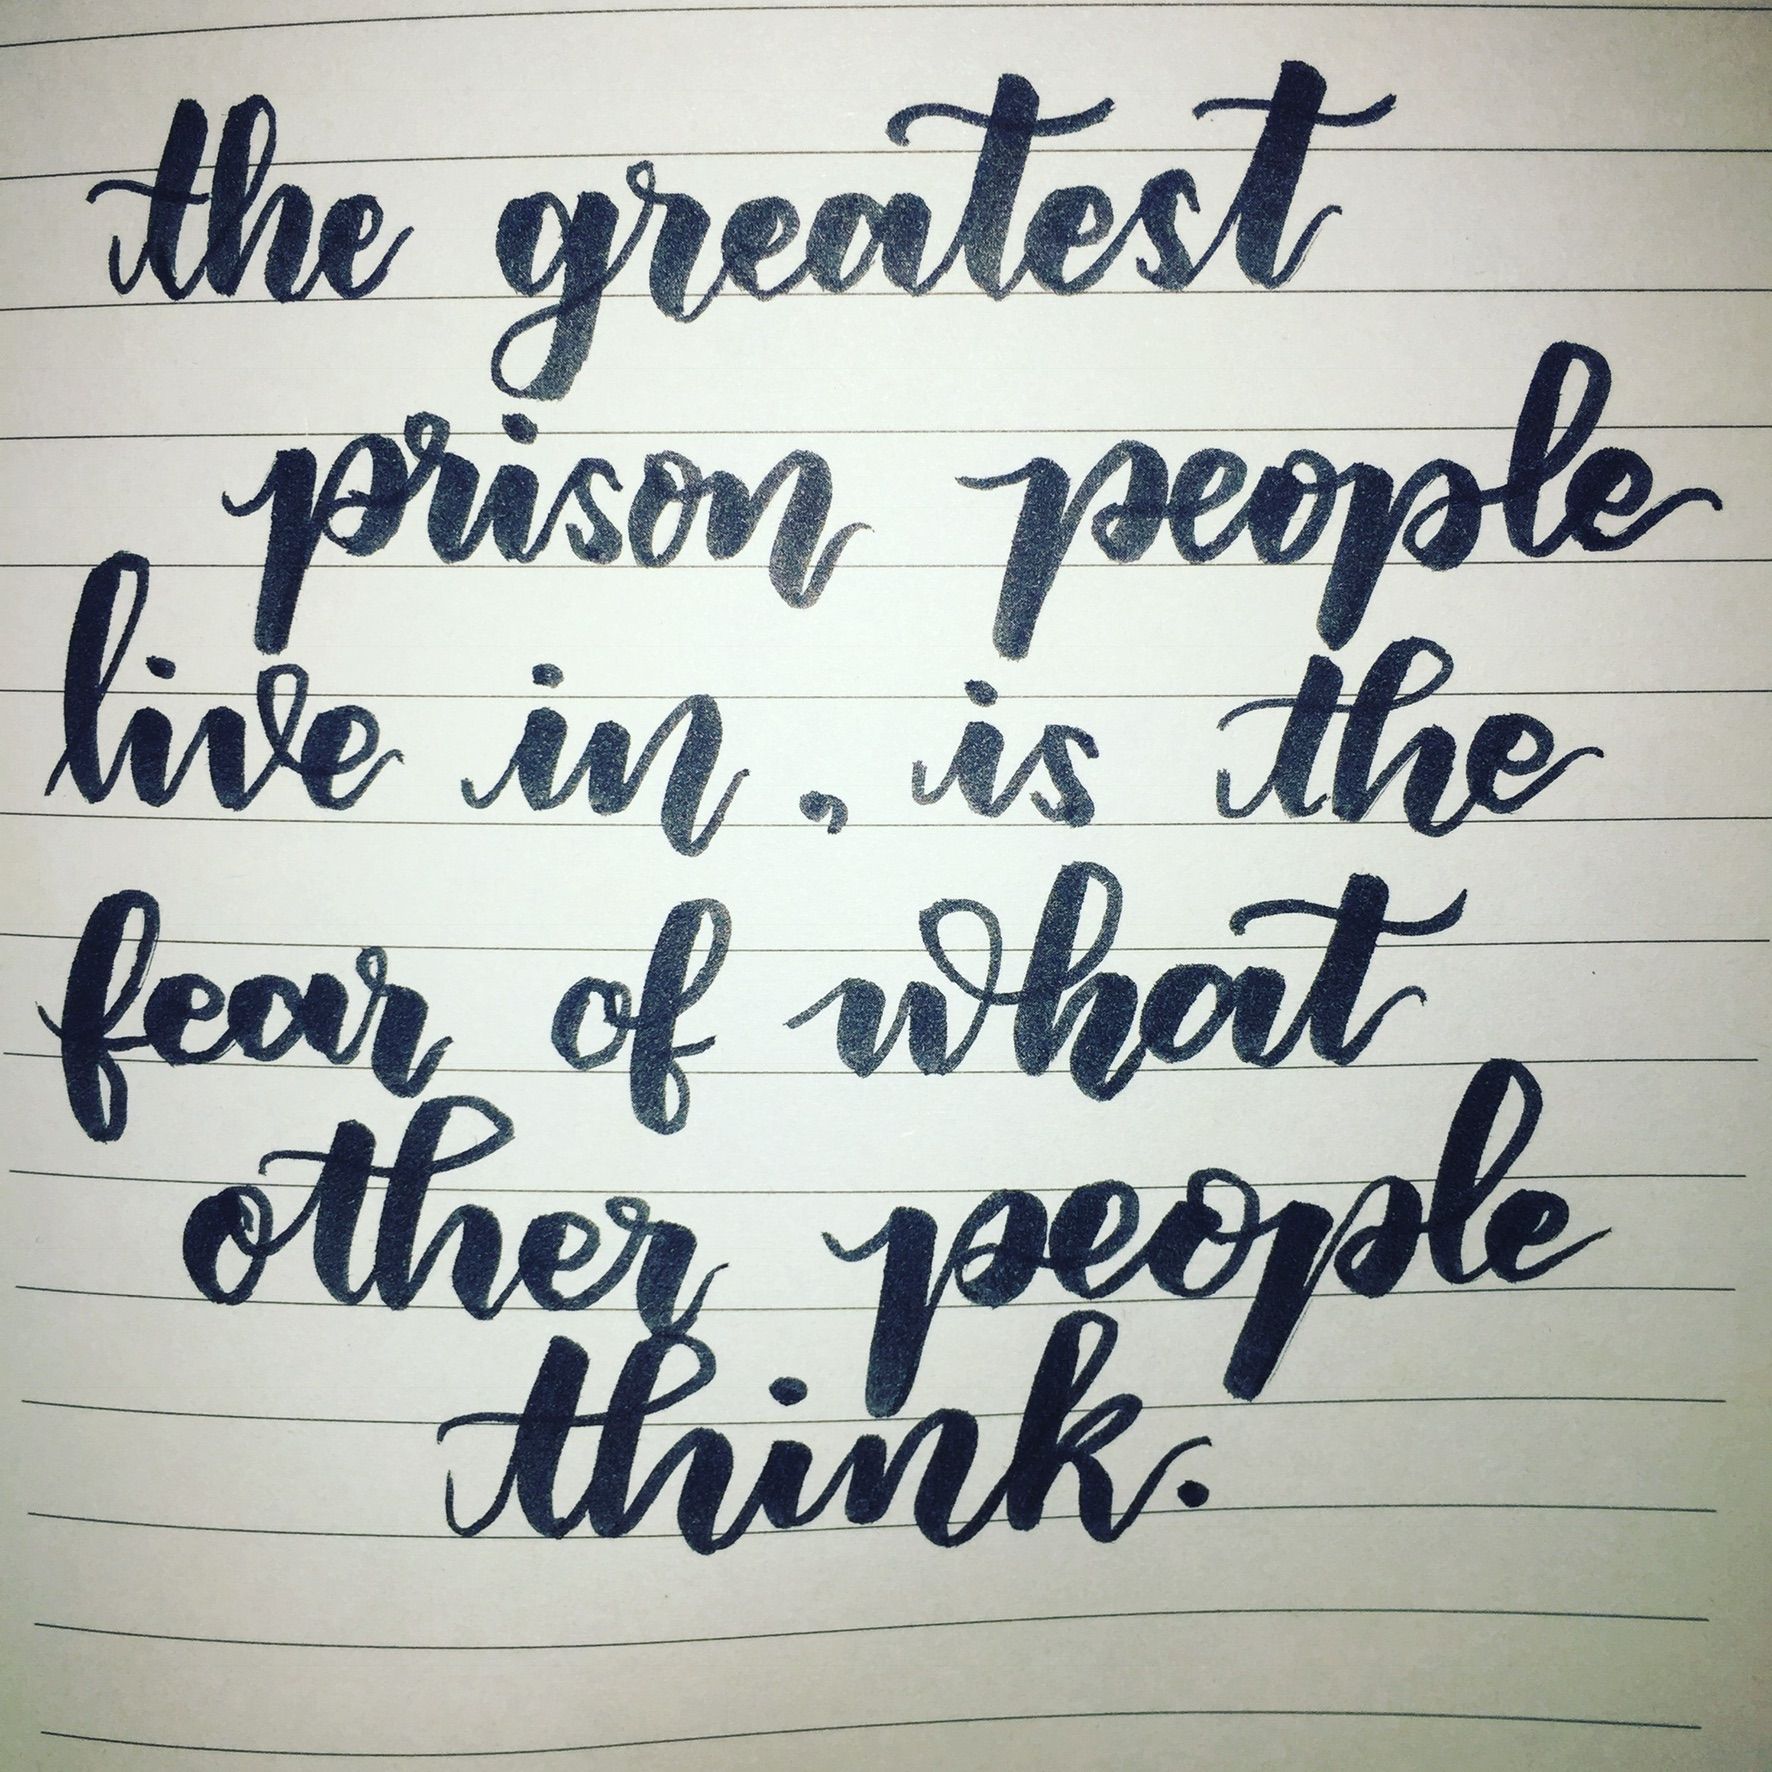 the greatest
prison people
live in, is the
fear of what
other people
think.